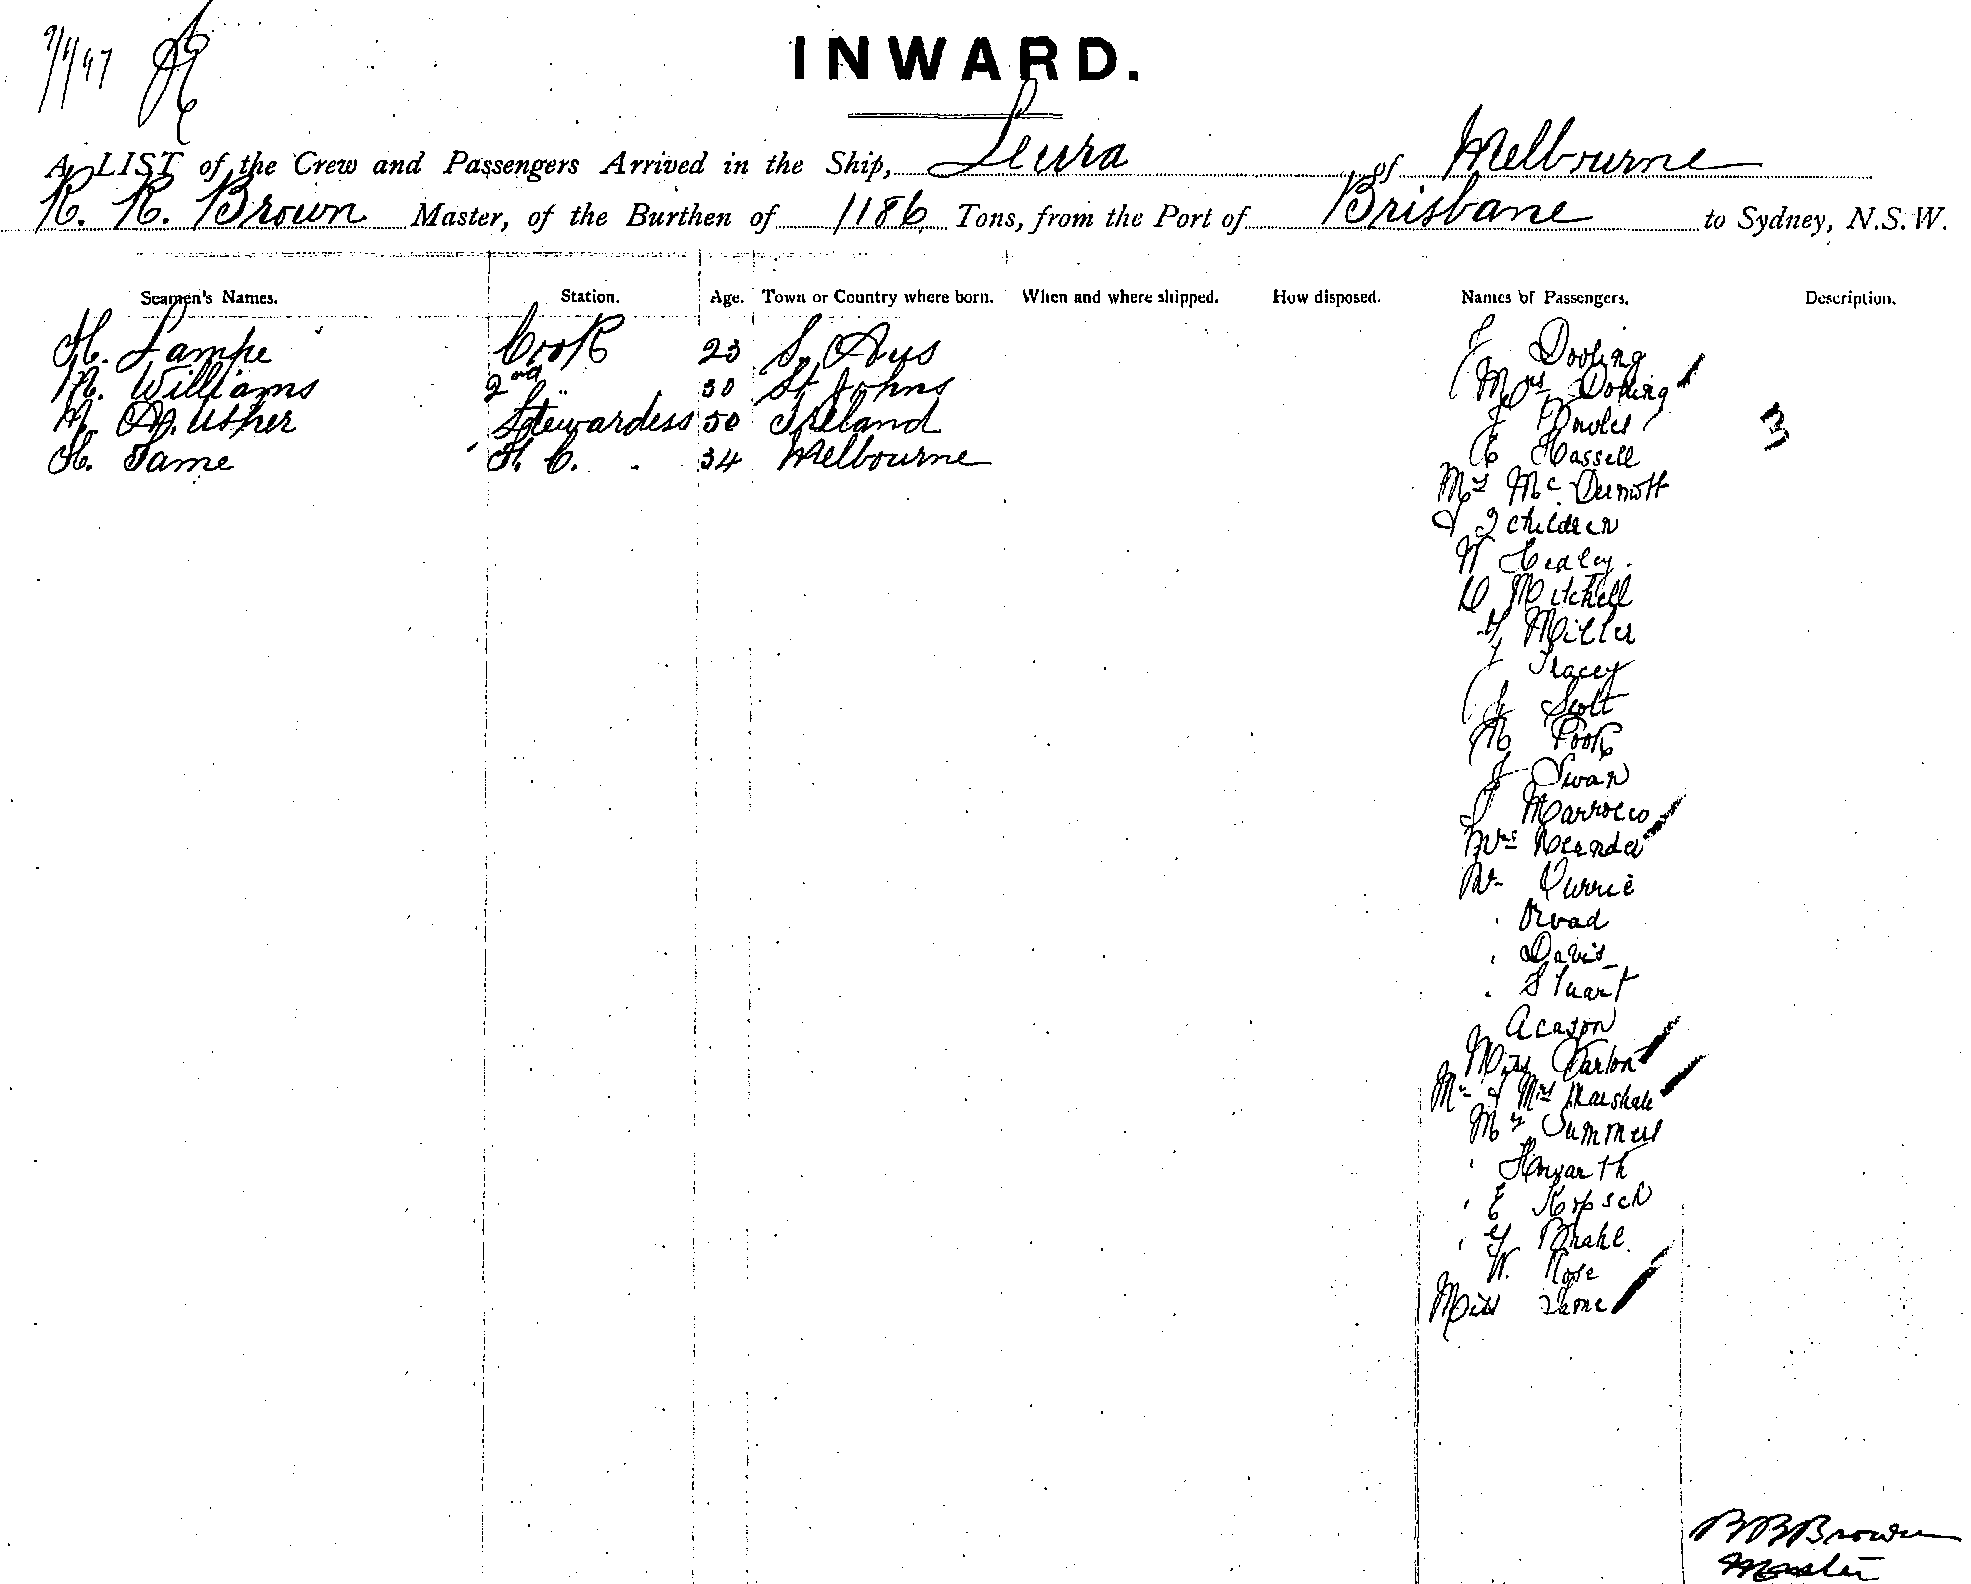 9/4/97
INWARD.
A LIST of the Crew and Passengers Arrived in the Ship, Leura of Melbourne
R. R. Brown Master, of the Burthen of 1186 Tons, from the Port of Brisbane to Sydney, N.S.W.
Seamen's Names. Station. Age. Town or Country where born. When and where shipped. How disposed. Names of Passengers. Description.
H. Lampe Cook 23 S. Aus
M. Williams 2nd " 30 St Johns
M. A. Usher Stewardess 50 Ireland
H. Tame F. C. 34 Melbourne
J Dooling
Mrs Dooling
J Bowles
3
E Hassell
Mrs McDermott
& 2 children
W Hedley.
D Mitchell
G Miller
J Tracey
J Scott
R Pook
J Swan
J Marrocco
Mrs
Mr Currie
Davis
Stuart
Acason
Miss Barton
Mr & Mrs Marshall
Mr Summers
E Kopsch
G Brake.
W. Rose
Miss
R R Brown
Master